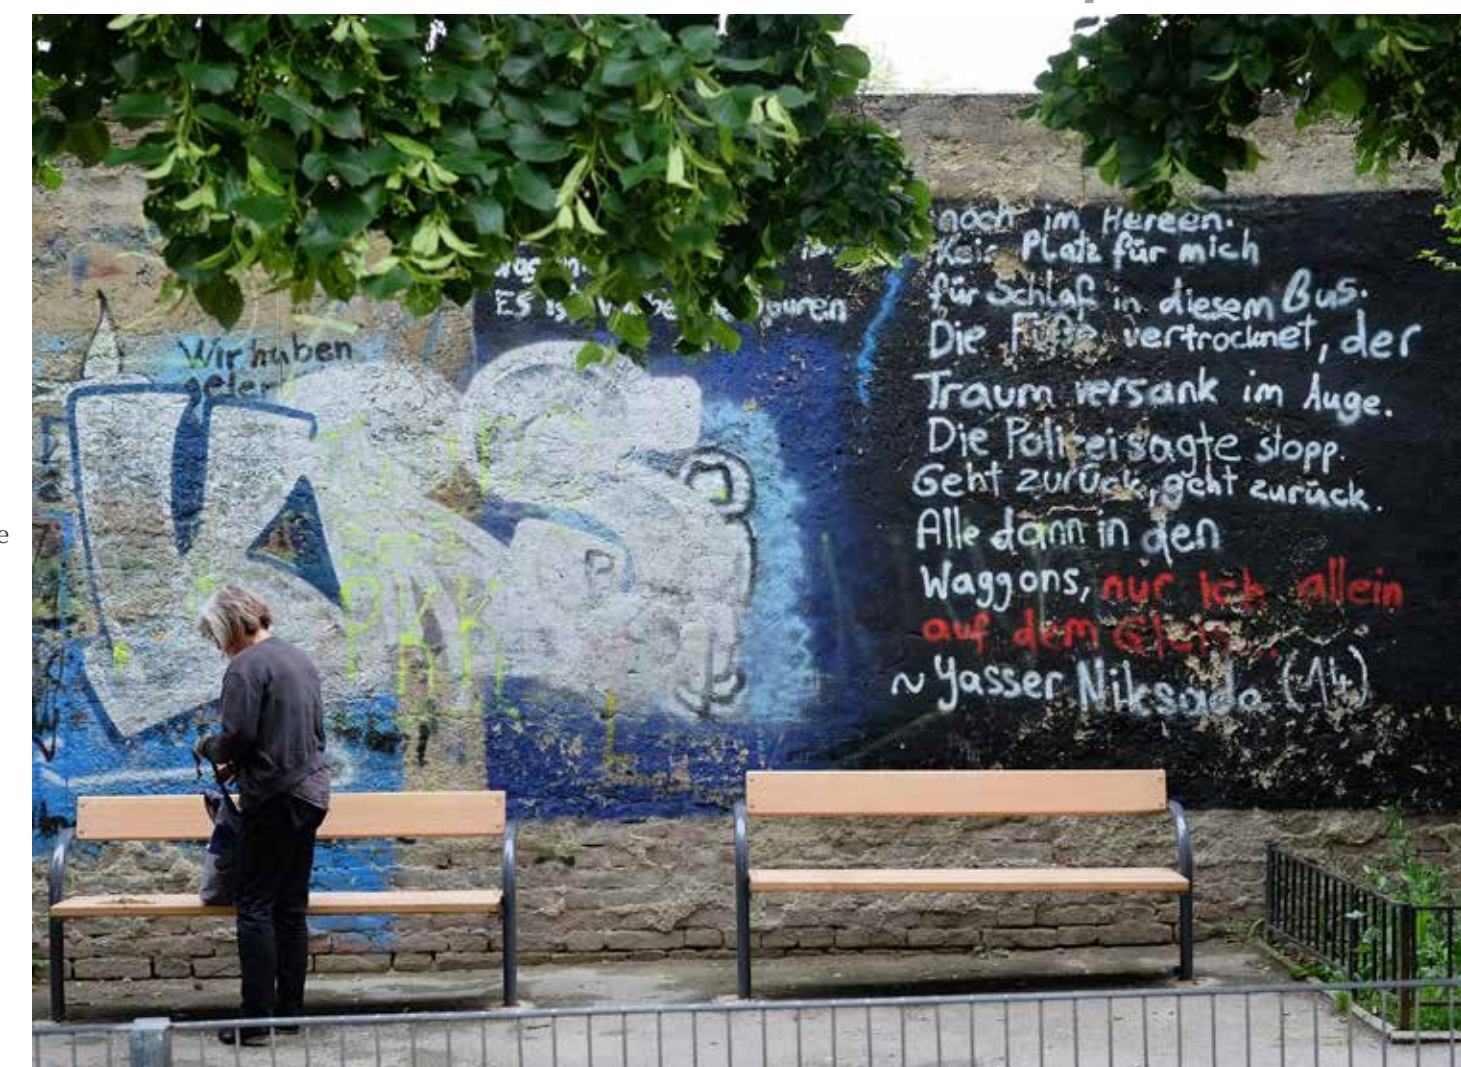 Wir haben
Es ist
noch im Hereen.
Kein Platz für mich
für Schlaf in diesem Bus.
Die Füße vertrocknet, der
Traum versank im Auge.
Die Polizei sagte stopp.
Geht zurück, geht zurück.
Alle dann in den
Waggons, nur ich allein
auf dem Gleis...
~ Yasser Niksada (14)
PKK
e